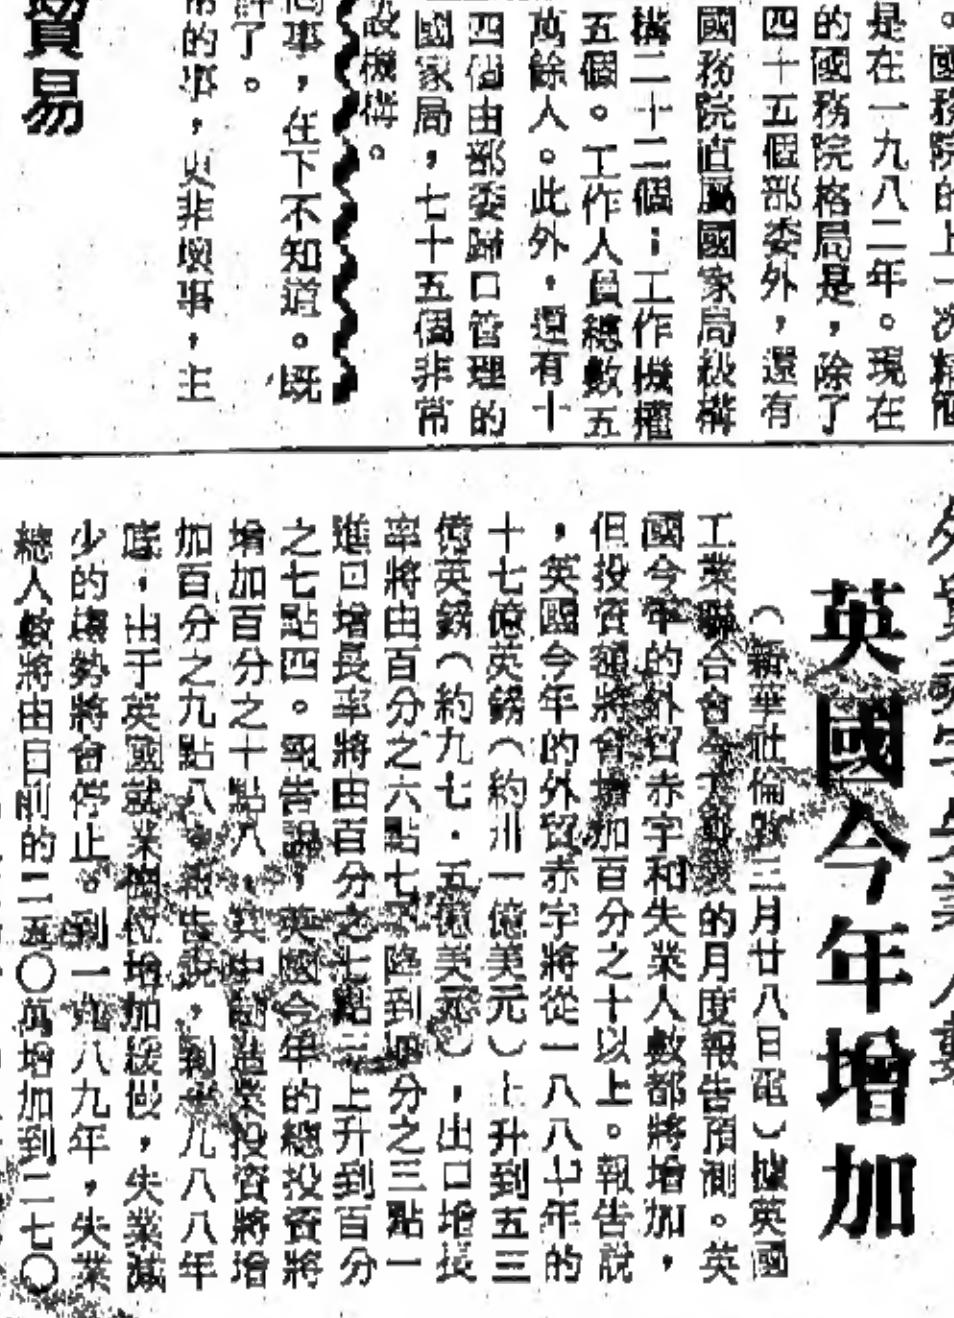 。國務院的上一次精簡
是在一九八二年。現在
的國務院格局是，除了
四十五個部委外，還有
國務院直屬國家局級構
構二十二個；工作機構
五個。工作人員總數五
萬餘人。此外，還有十
四個由部委歸口管理的
國家局，七十五個非常
設機構。
同事，在下不知道。既
評了。
常的事，更非壞事，主
貿易
英國今年增加
（新華社倫敦三月廿八日電）據英國
工業聯合會今天發表的月度報告預測。英
國今年的外貿赤字和失業人數都將增加，
但投資額將會增加百分之十以上。報告說
，英國今年的外貿赤字將從一八八七年的
十七億英鎊（約卅一億美元）上升到五三
億英鎊（約九七．五億美元），出口增長
率將由百分之六點七下降到百分之三點一
進口增長率將由百分之七點三上升到百分
之七點四。報告說，英國今年的總投資將
增加百分之十點八，其中製造業投資將增
加百分之九點八。報告說，到一九八八年
底，由于英國就業崗位增加緩慢，失業減
少的趨勢將會停止。到一九八九年，失業
總人數將由目前的二五〇萬增加到二七〇